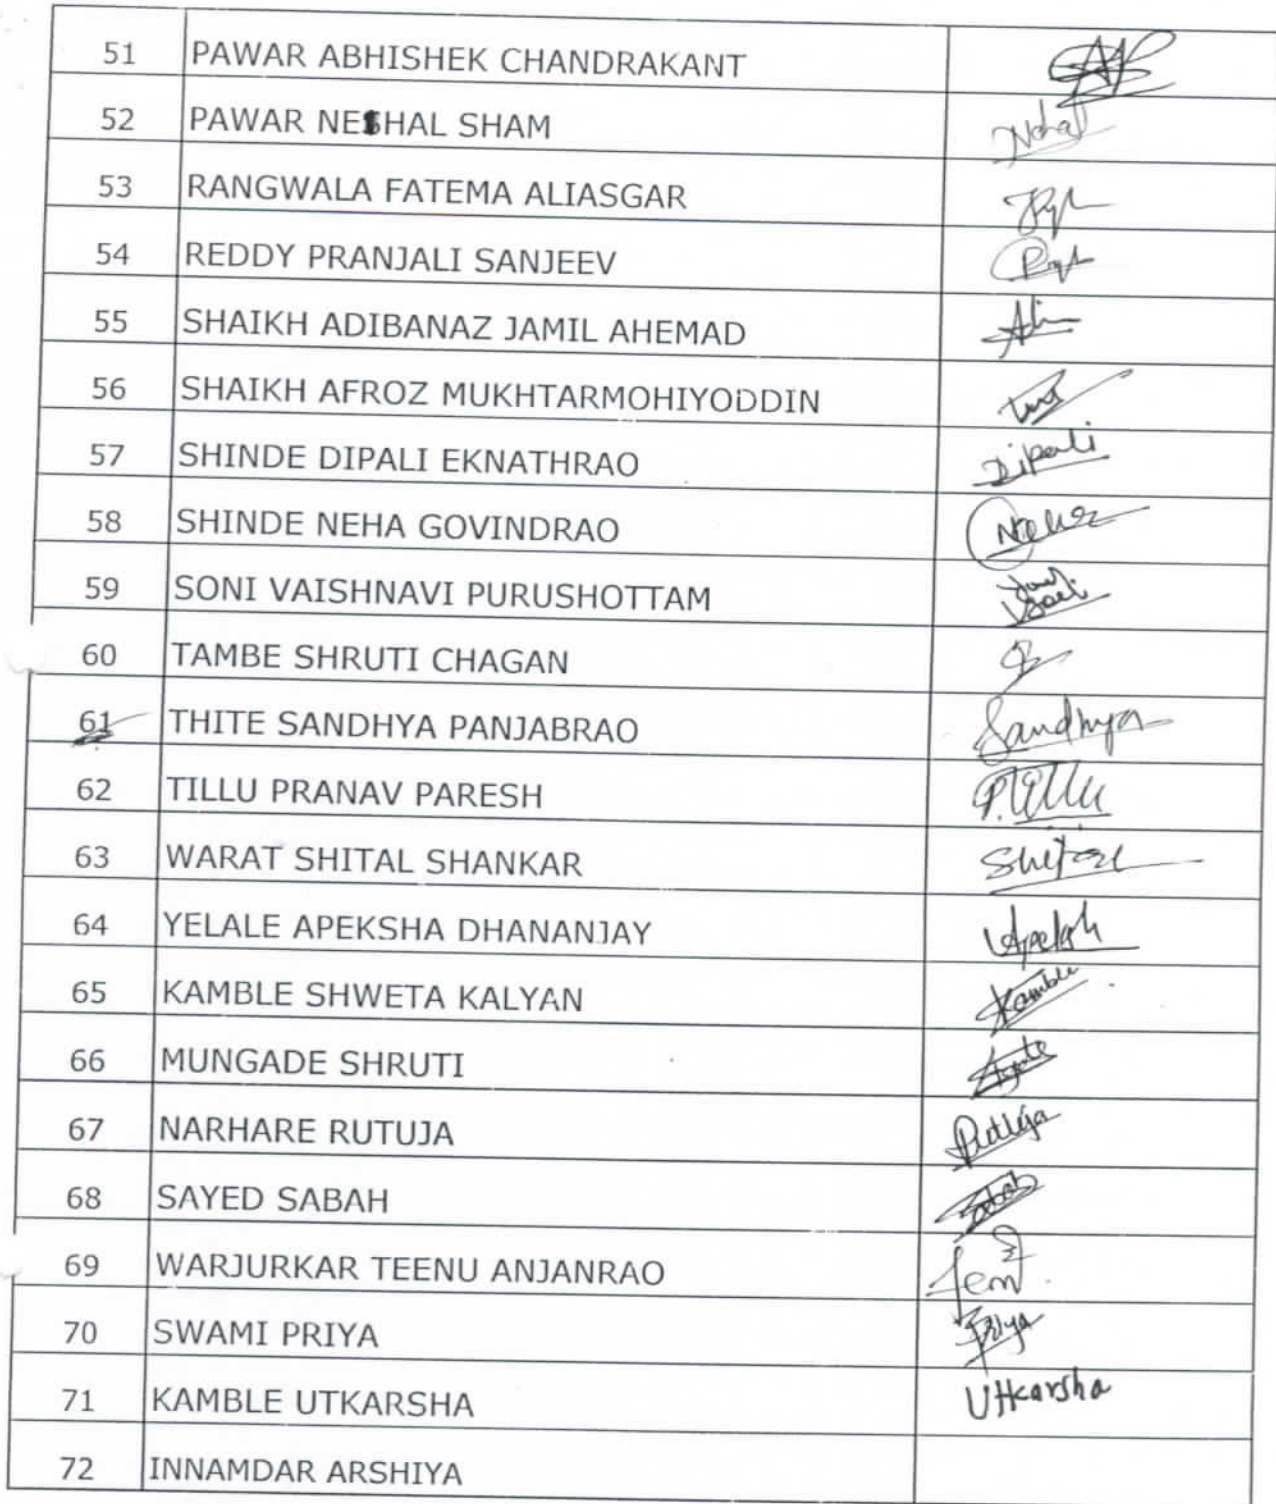 51 PAWAR ABHISHEK CHANDRAKANT
52 PAWAR NESHAL SHAM Nehal
53 RANGWALA FATEMA ALIASGAR
54 REDDY PRANJALI SANJEEV
55 SHAIKH ADIBANAZ JAMIL AHEMAD
56 SHAIKH AFROZ MUKHTARMOHIYODDIN
57 SHINDE DIPALI EKNATHRAO Dipali
58 SHINDE NEHA GOVINDRAO Neha
59 SONI VAISHNAVI PURUSHOTTAM
60 TAMBE SHRUTI CHAGAN
61 THITE SANDHYA PANJABRAO Sandhya
62 TILLU PRANAV PARESH P. Tillu
63 WARAT SHITAL SHANKAR Shital
64 YELALE APEKSHA DHANANJAY
65 KAMBLE SHWETA KALYAN Kamble
66 MUNGADE SHRUTI
67 NARHARE RUTUJA Rutuja
68 SAYED SABAH Sabah
69 WARJURKAR TEENU ANJANRAO
70 SWAMI PRIYA Priya
71 KAMBLE UTKARSHA Utkarsha
72 INNAMDAR ARSHIYA